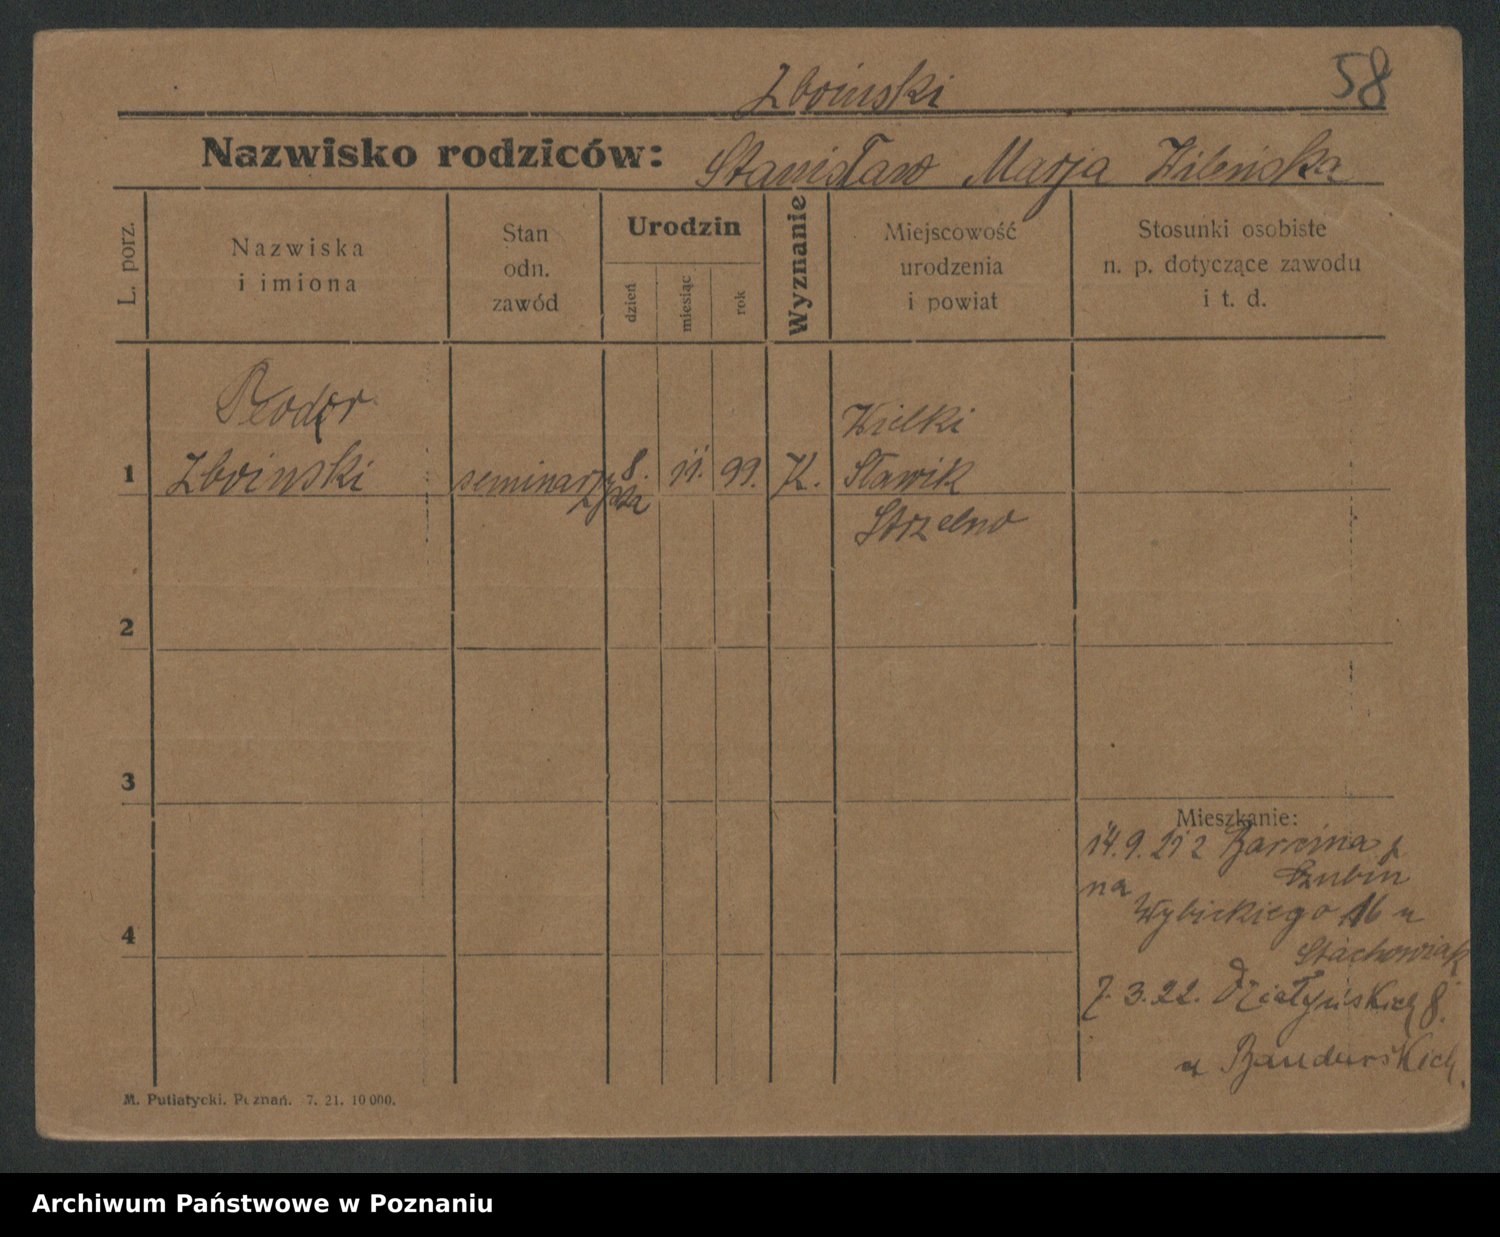 Zboinski
58
Nazwisko rodziców: Stanisław Marja Zileńska
L. porz.
Nazwiska
i imiona
Stan
odn.
zawód
Urodzin
dzień
miesiąc
rok
Wyznanie
Miejscowość
urodzenia
i powiat
Stosunki osobiste
n. p. dotyczące zawodu
i t. d.
Teodor
1 Zboinski seminarzysta 8. 11. 99. K.
Wielki
Sławik
Strzelno
2
3
4
Mieszkanie:
14.9.21 z Barcina p
Szubin
na
Wybickiego 16 u
Stachowiak
7.3.22. Działyńskich 8.
u Bandurskich.
M. Putiatycki. Poznań. 7. 21. 10 000.
Archiwum Państwowe w Poznaniu